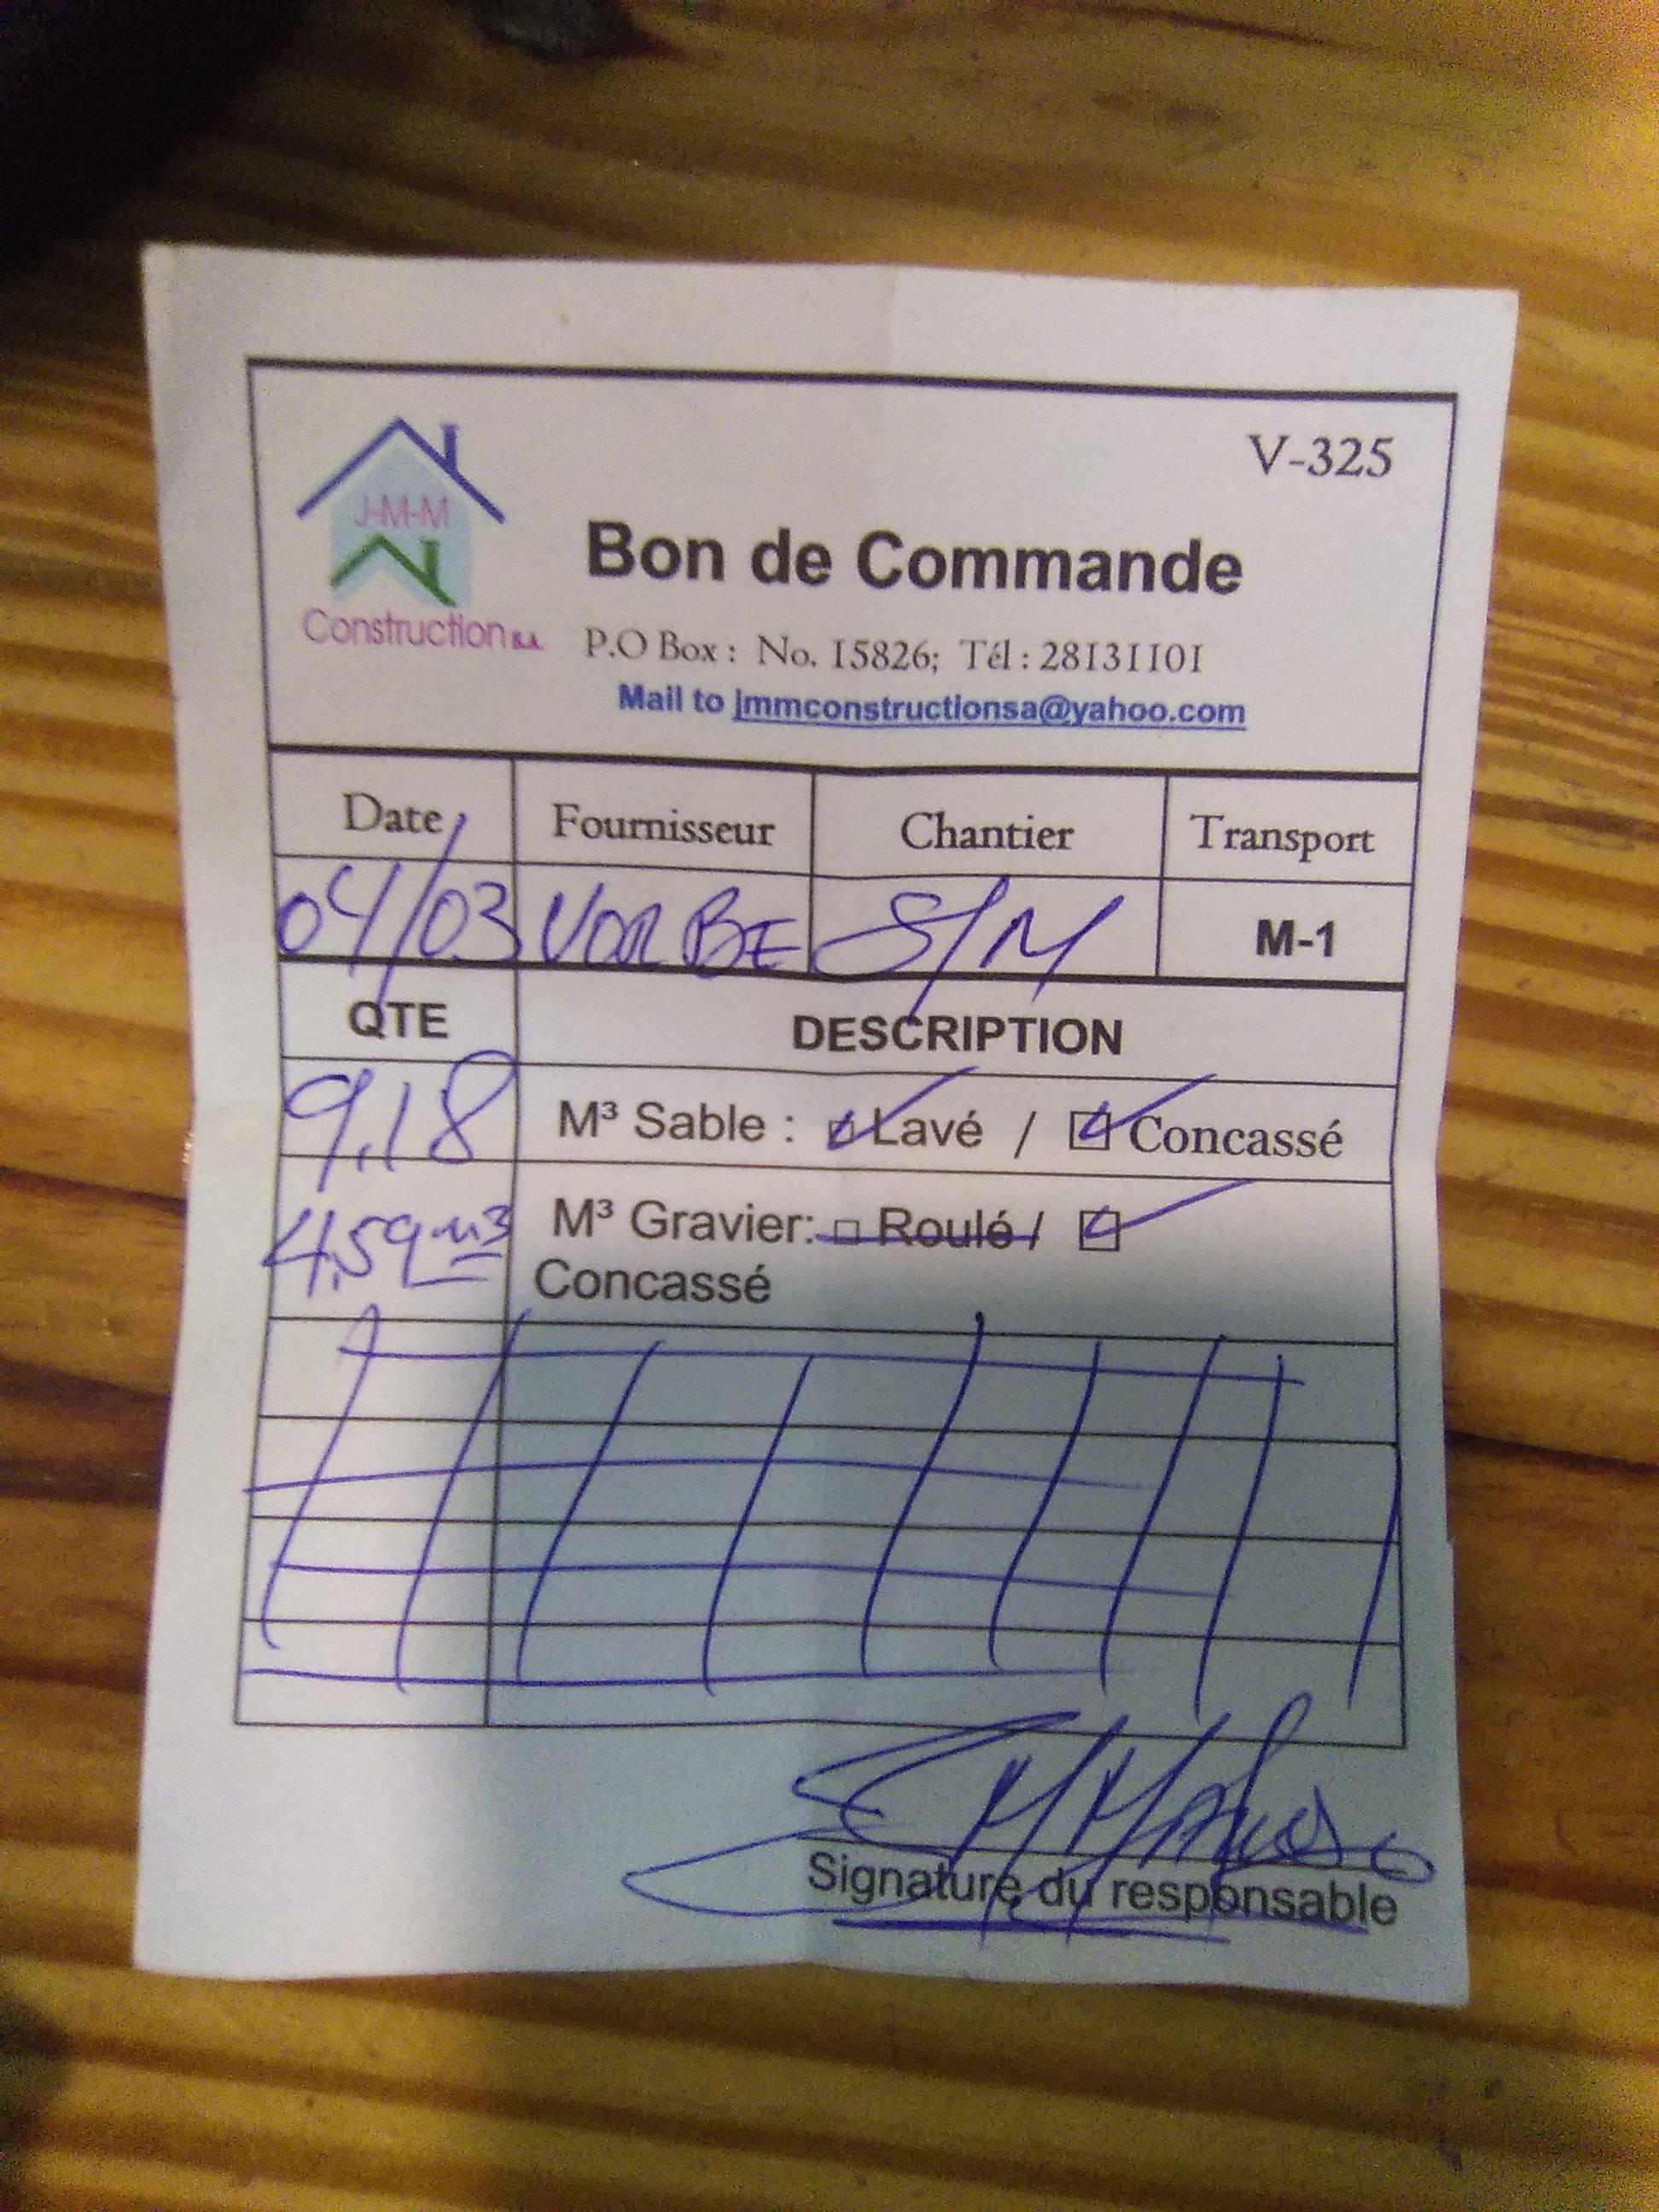 V-325
J-M-M
Construction S.A.
Bon de Commande
P.O Box : No. 15826; Tél : 28131101
Mail to jmmconstructionsa@yahoo.com
Date Fournisseur Chantier Transport
04/03 VORBE S/M M-1
QTE DESCRIPTION
9,18 M³ Sable : ☑ Lavé / ☑ Concassé
4,59 m3 M³ Gravier: □ Roulé / ☑
Concassé
Signature du responsable